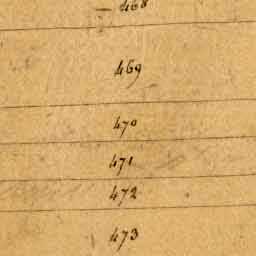 468
469
470
471
472
473